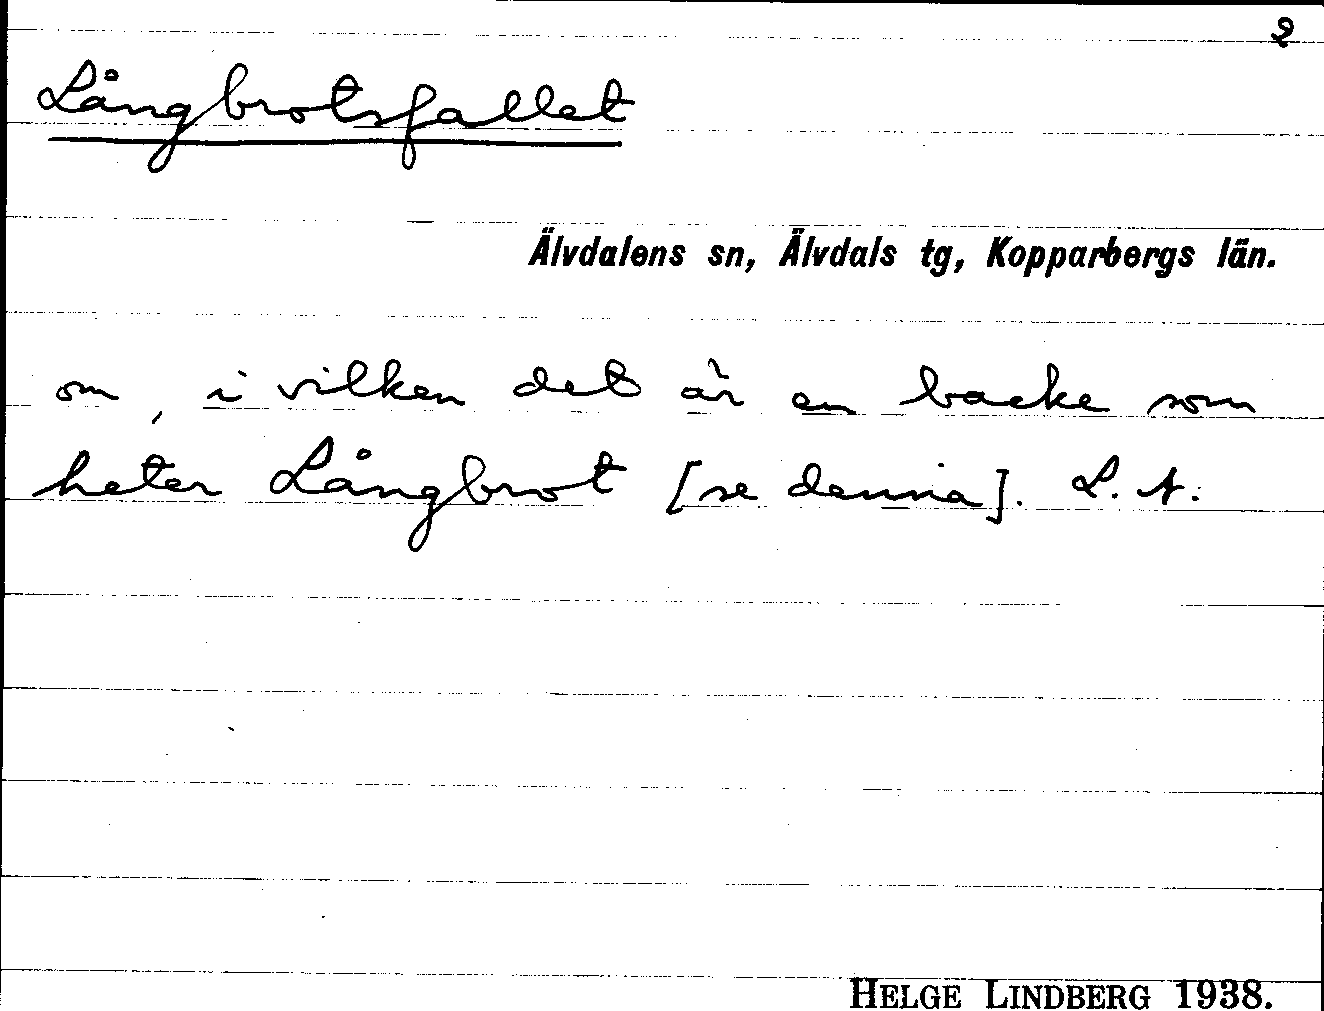 2
Långbrotsfallet
Älvdalens sn, Älvdals tg, Kopparbergs län.
om, i vilken det är en backe som
heter Långbrot [se denna]. L. A.
HELGE LINDBERG 1938.